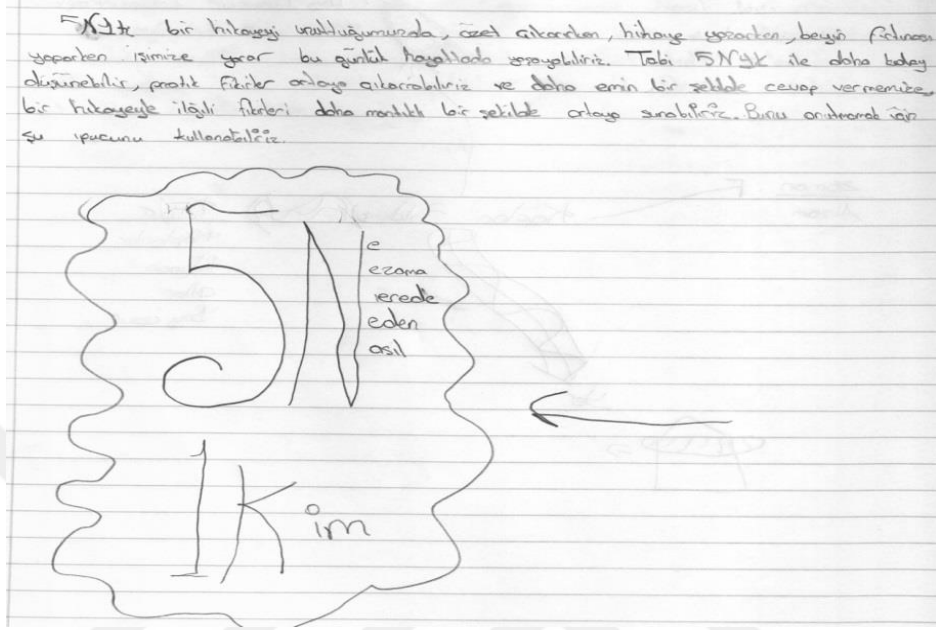 5N1K bir hikayeyi unuttuğumuzda, özet çıkarırken, hikaye yazarken, beyin fırtınası
yaparken işimize yarar bu günlük hayatlada yapabiliriz. Tabi 5N1K ile daha kolay
düşünebilir, pratik fikirler ortaya çıkarabiliriz ve daha emin bir şekilde cevap vermemize,
bir hikayeyle ilgili fikirleri daha mantıklı bir şekilde ortaya sunabiliriz. Bunu unutmamak için
şu ipucunu kullanabiliriz.
5N e
ezama
erede
eden
asıl
1Kim